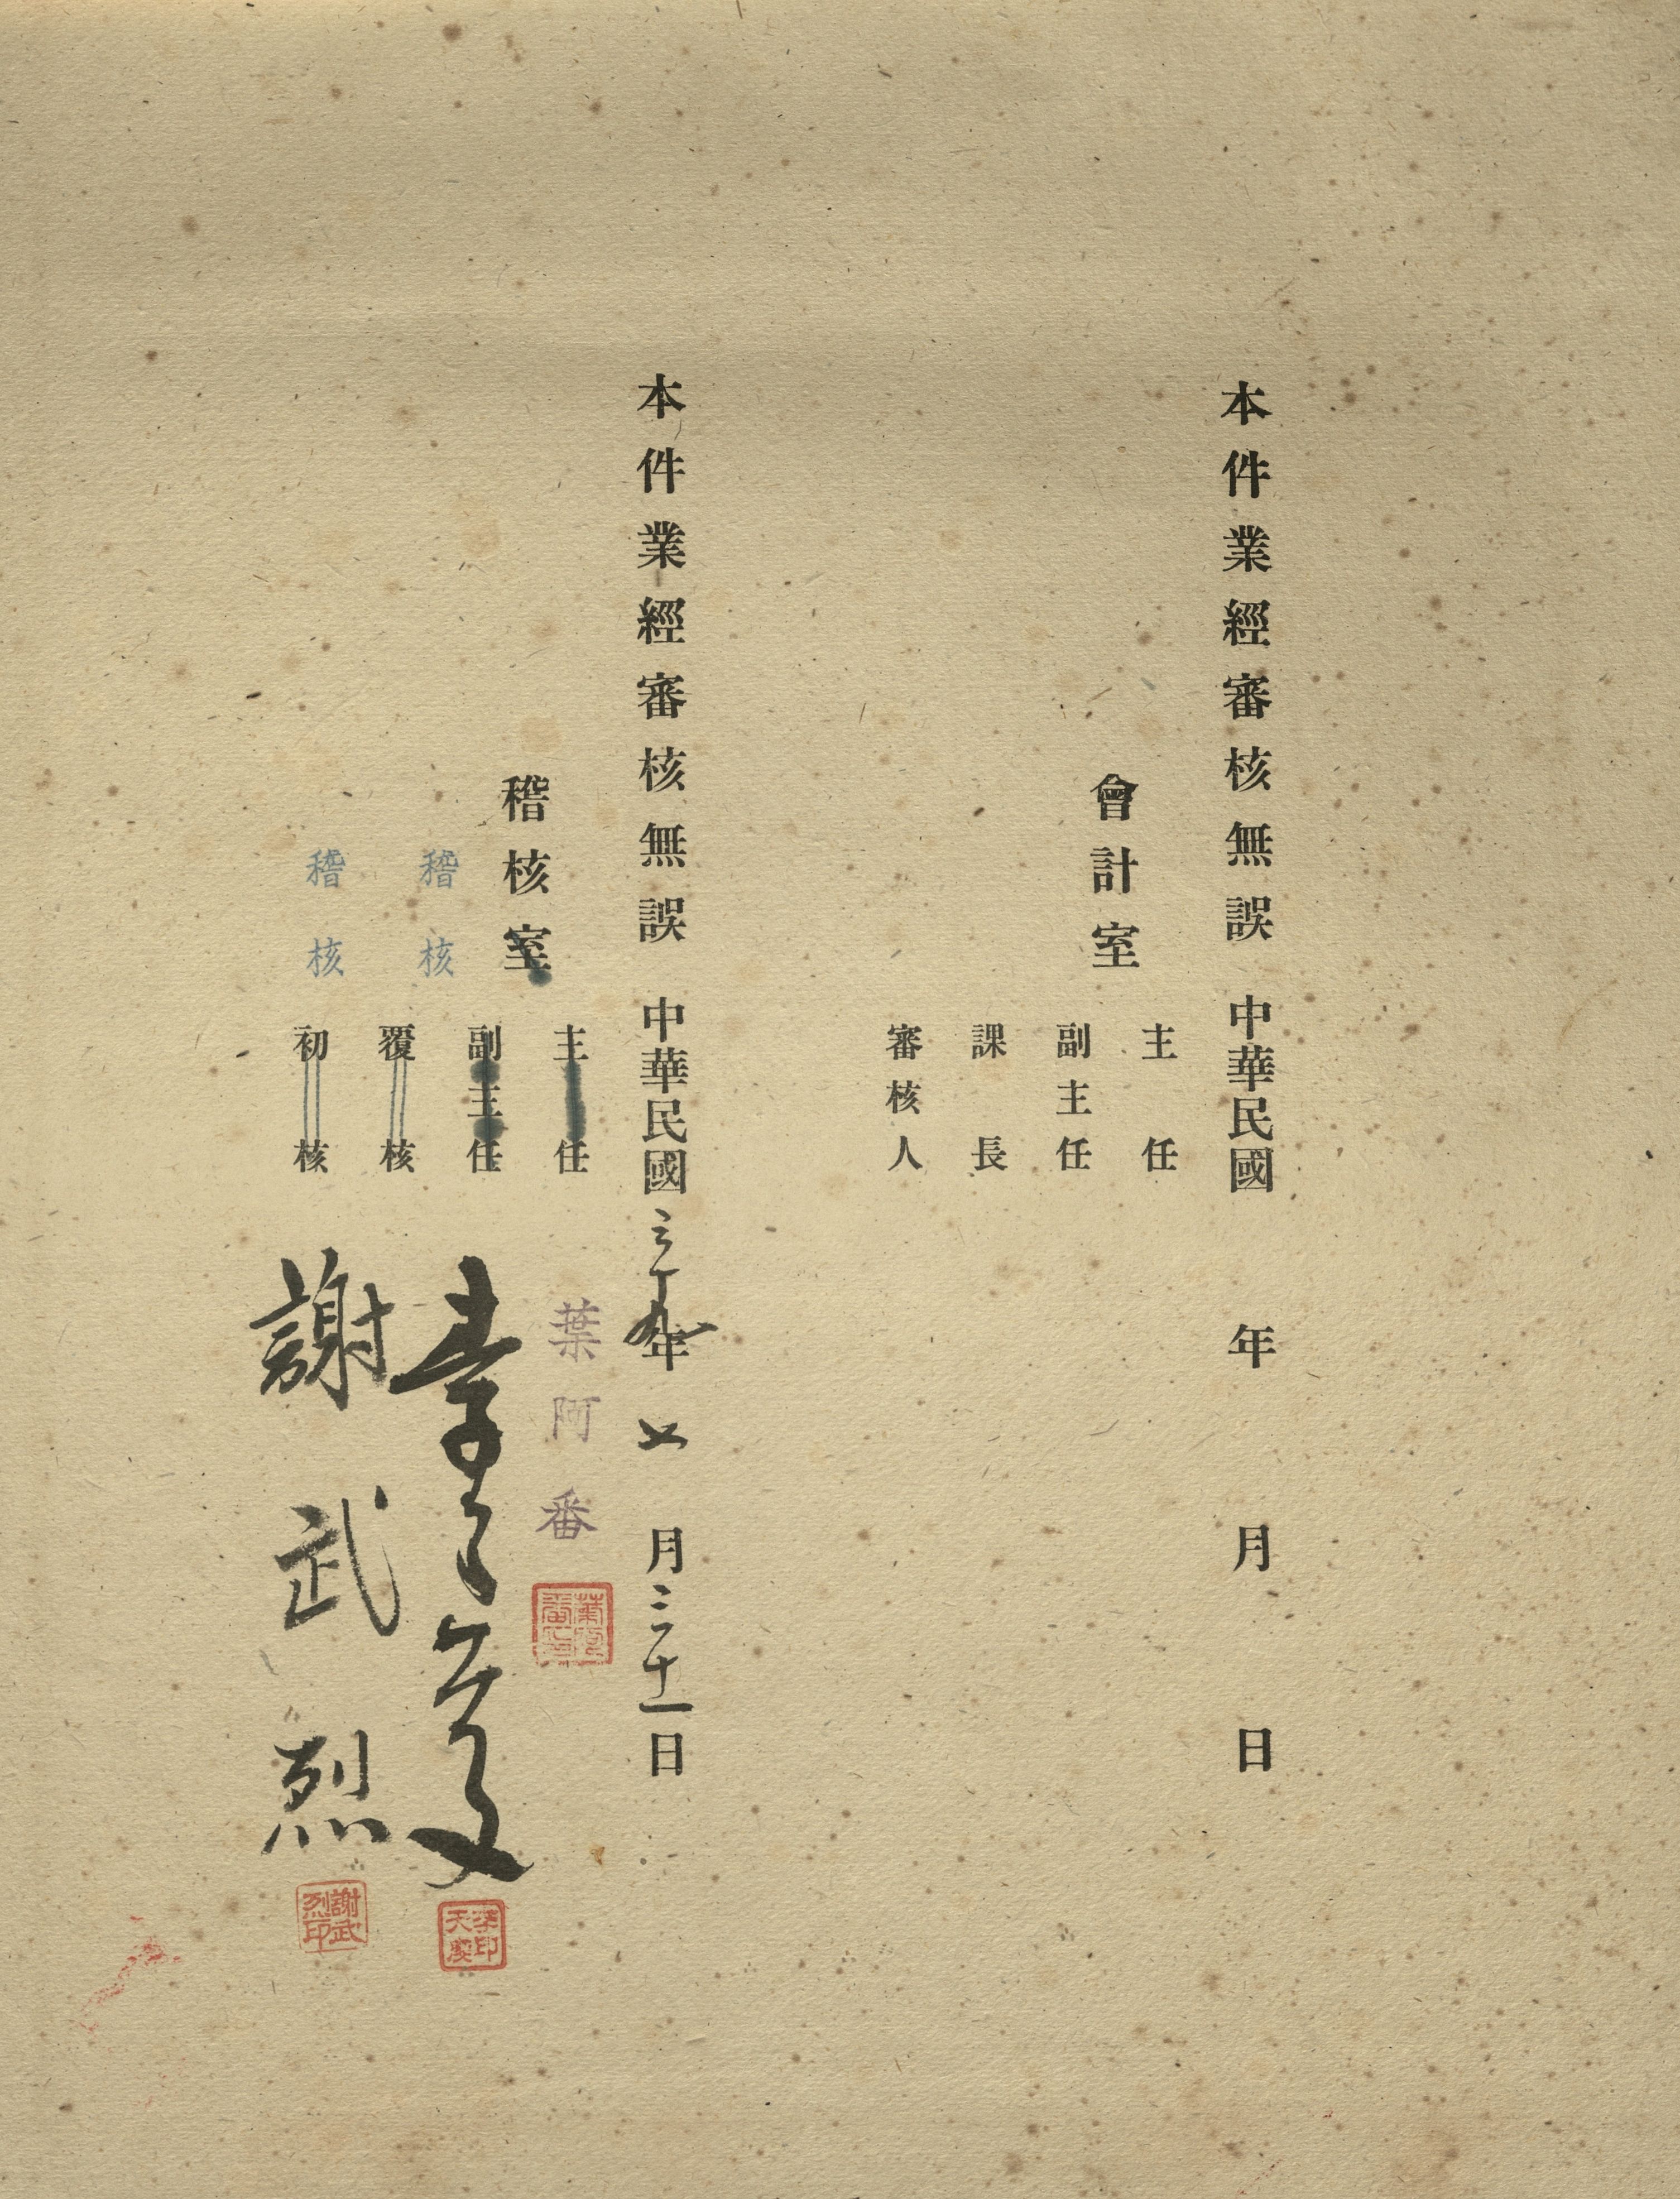 本件業經審核無誤 中華民國 年 月 日
會計室
主任
副主任
課長
審核人
本件業經審核無誤 中華民國三十九年七月三十一日
稽核室
主任 葉阿番
副主任
稽核
覆核
稽核
初核 謝武烈
謝武烈印